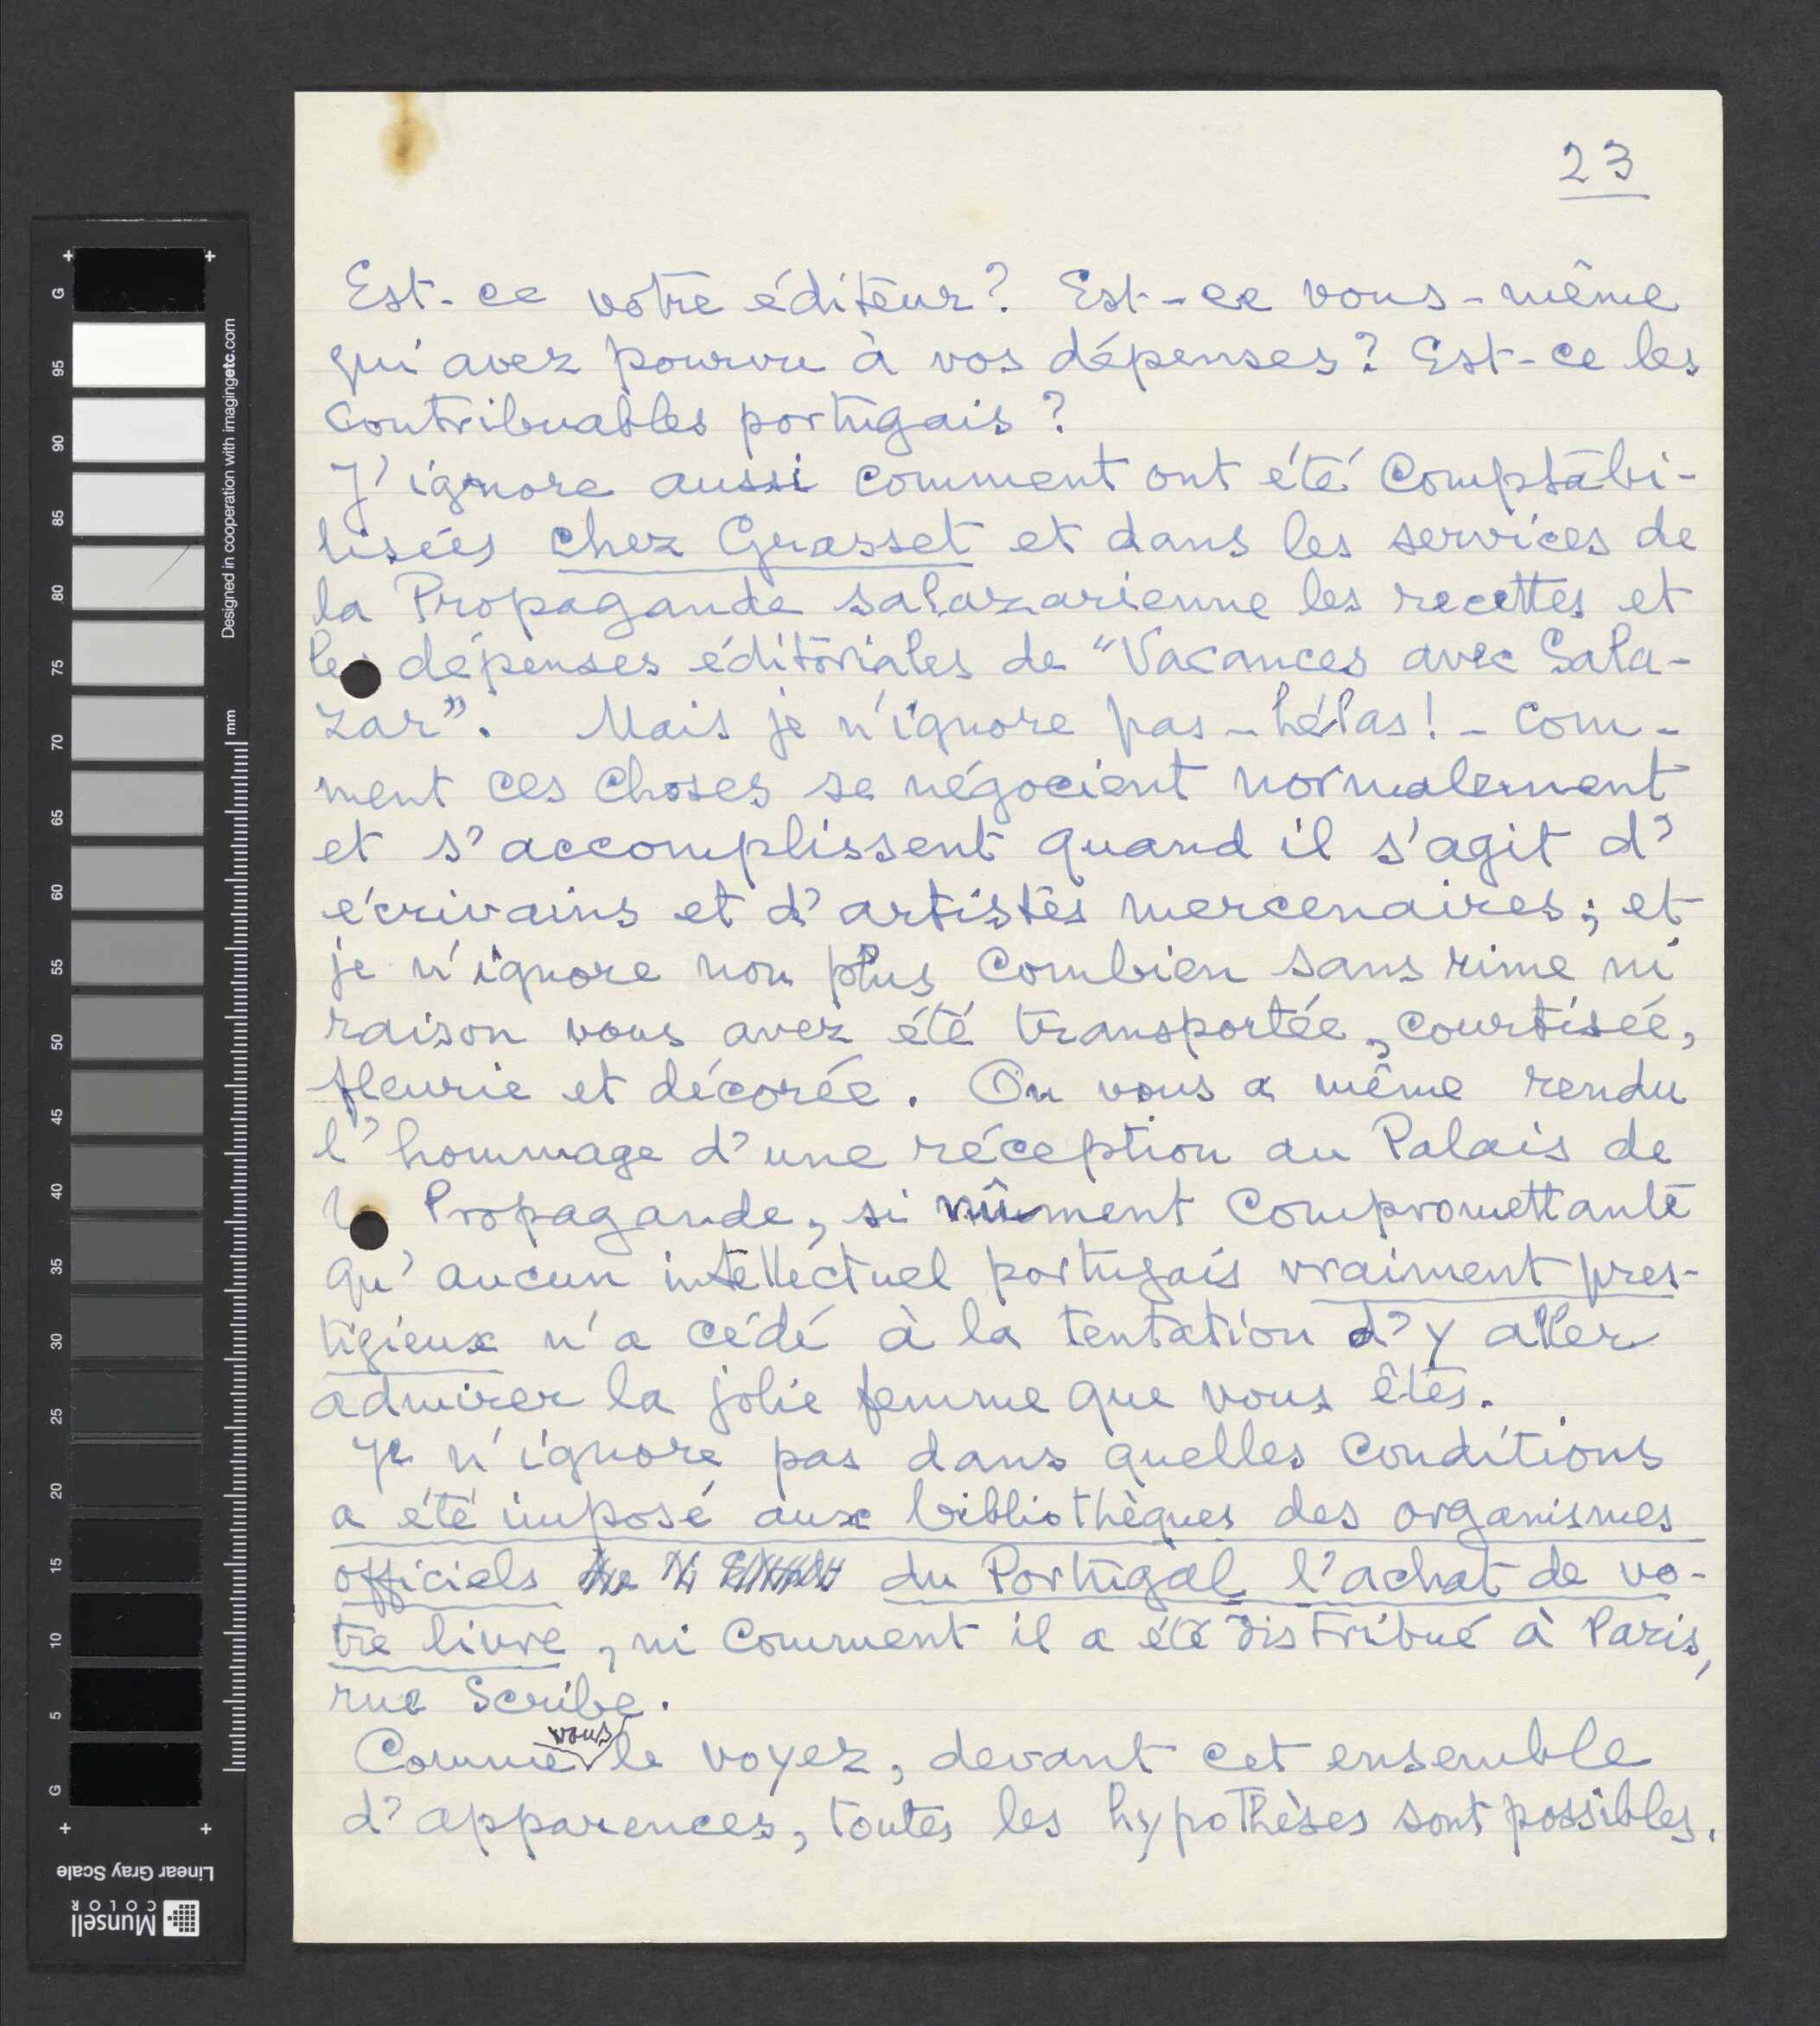 23
Est-ce votre éditeur? Est-ce vous-même
qui avez pourvu à vos dépenses? Est-ce les
contribuables portugais?
J'ignore aussi comment ont été comptabi-
lisées chez Grasset et dans les services de
la Propagande salazarienne les recettes et
les dépenses éditoriales de "Vacances avec Sala-
zar". Mais je n'ignore pas - hélas! - com-
ment ces choses se négocient normalement
et s'accomplissent quand il s'agit d'
écrivains et d'artistes mercenaires; et
je n'ignore non plus combien sans rime ni
raison vous avez été transportée, courtisée,
fleurie et décorée. On vous a même rendu
l'hommage d'une réception au Palais de
Propagande, si nûment compromettante
qu'aucun intellectuel portugais vraiment pres-
tigieux n'a cédé à la tentation d'y aller
admirer la jolie femme que vous êtes.
Je n'ignore pas dans quelles conditions
a été imposé aux bibliothèques des organismes
officiels du Portugal l'achat de vo-
tre livre, ni comment il a été distribué à Paris,
rue Scribe.
Comme vous le voyez, devant cet ensemble
d'apparences, toutes les hypothèses sont possibles.
G
95
90
85
80
75
70
65
60
55
50
45
40
35
30
25
20
15
10
5
G
Designed in cooperation with imagingetc.com
mm
Linear Gray Scale
Munsell
COLOR